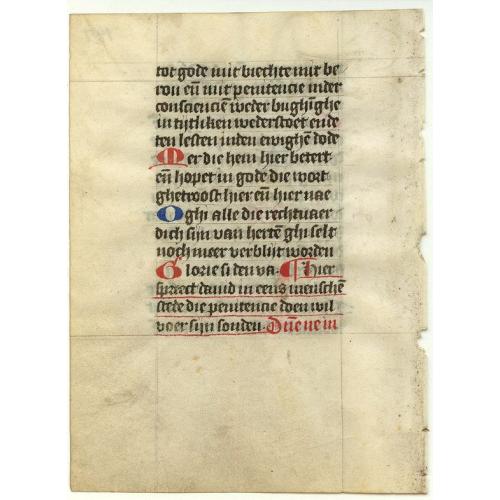 tot gode mit biechte mit be
rou eñ mit penitencie in der
consciencië weder bughinghe
in tijtliken wederstoet ende
ten lesten in den ewighē dode
Mer die hem hier betert
eñ hopet in gode die wort
ghetroost hier eñ hier nae
O ghi alle die rechtuaer
dich sijn van hertē ghi selt
noch meer verblijt worden
Glorie si den va. Hier
spreect dauid in eens menschē
stede die penitencie doen wil
voer sijn sonden. Dñe ne in